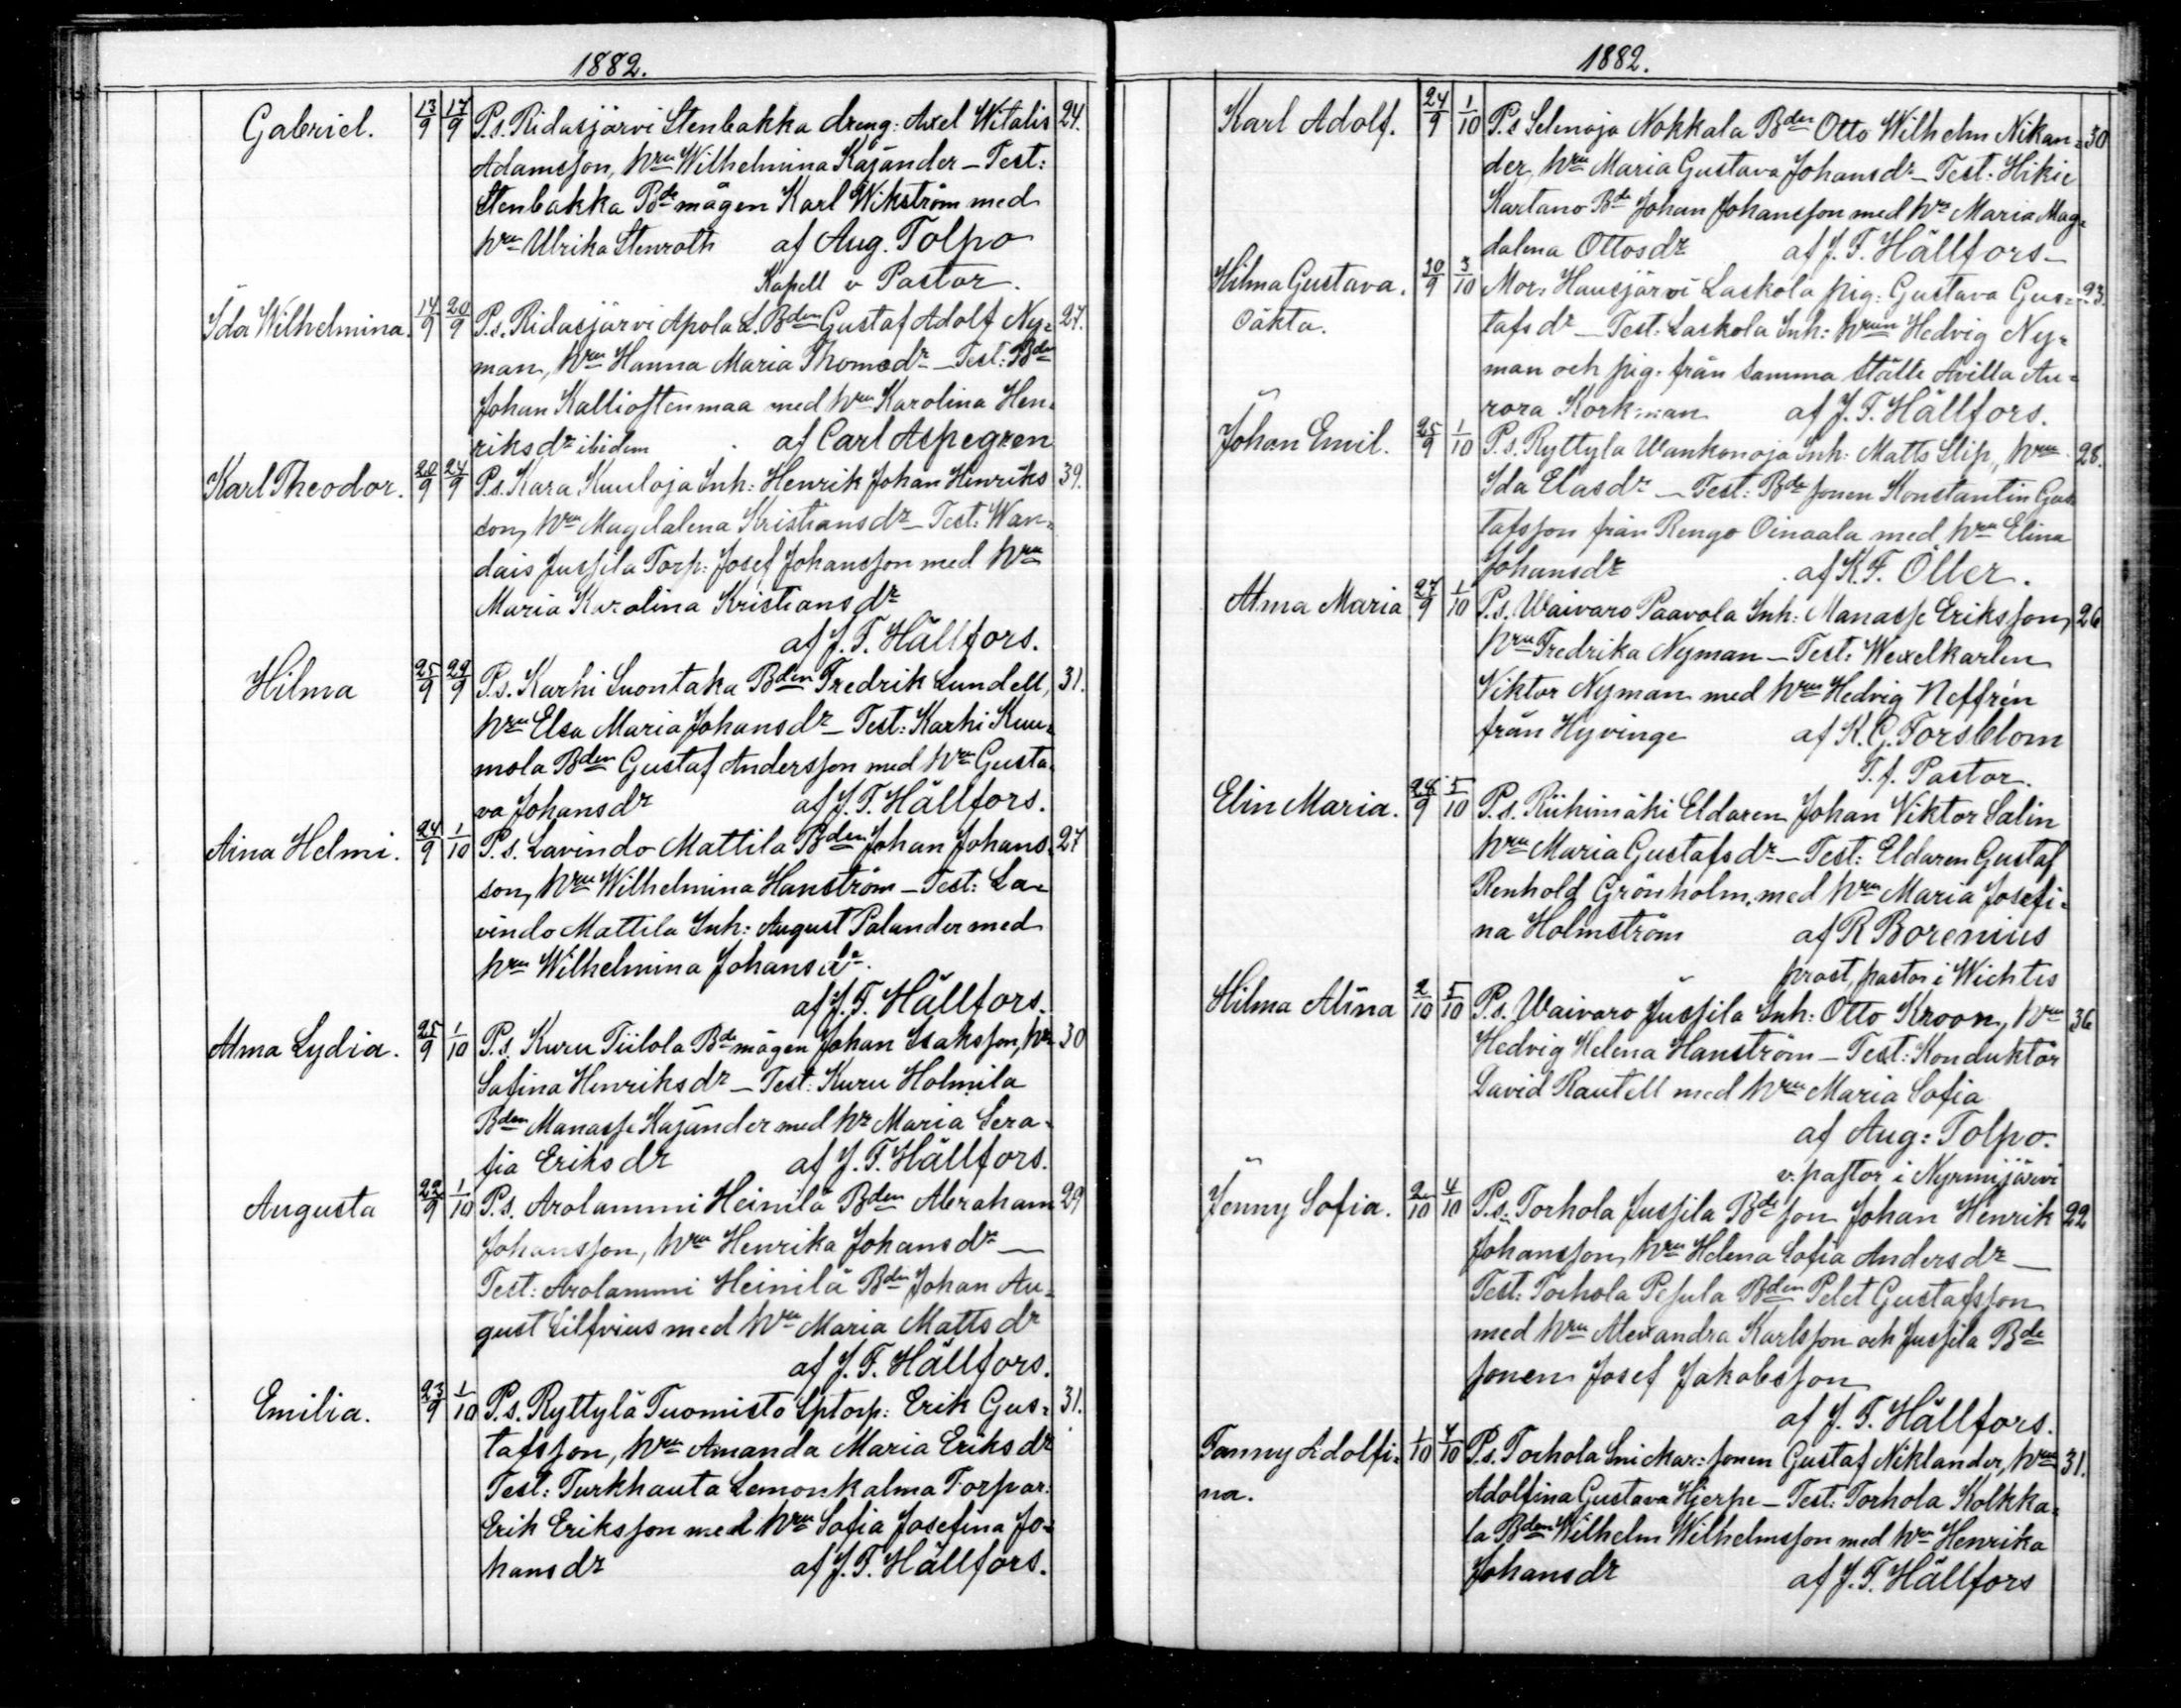 1882.
Gabriel. 13/9 17/9 P.s. Ridasjärvi Stenbakka dreng: Axel Witalis 24.
Adamsson, hru Wilhelmina Kajander – Test:
Stenbakka Bde mågen Karl Wikström med
hru Ulrika Stenroth af Aug. Tolpo
Kapell v Pastor.
Ida Wilhelmina. 14/9 20/9 P.s. Ridasjärvi Apola L. Bden Gustaf Adolf Ny= 27.
man, hru Hanna Maria Thomsdr – Test: Bden
Johan Kallioistenmaa med hru Karolina Hen=
riksdr ibidem af Carl Aspegren
Karl Theodor. 20/9 24/9 P.s. Kara Kuuloja Inh: Henrik Johan Henriks 39.
son, hru Magdalena Kristiansdr – Test: Wan=
dais Jussila Torp: Josef Johansson med hru
Maria Karolina Kristiansdr
af J. F. Hällfors.
Hilma 25/9 29/9 P.s. Karhi Luontaka Bden Fredrik Lundell, 31.
hru Elsa Maria Johansdr – Test: Karhi Kuu=
mola Bden Gustaf Andersson med hru Gusta=
va Johansdr af J. F. Hällfors.
Aina Helmi. 24/9 1/10 P.s. Lavindo Mattila Bden Johan Johans= 27
son, hru Wilhelmina Hanström – Test: La=
vindo Mattila Inh: August Palander med
hru Wilhelmina Johansdr.
af J. F. Hällfors.
Alma Lydia. 25/9 1/10 P.s. Kuru Tiilola Bde mågen Johan Isaksson, hr 30
Safina Henriksdr – Test: Kuru Holmila
Bden Manasse Kajander med hr Maria Sera=
fia Eriksdr af J. F. Hällfors.
Augusta 22/9 1/10 P.s. Arolammi Heinilä Bden Abraham 29
Johansson, hru Henrika Johansdr –
Test: Arolammi Heinilä Bdn Johan Au=
gust Silfvius med hru Maria Mattsdr
af J. F. Hällfors.
Emilia. 23/9 1/10 P.s. Ryttylä Tuomisto Sptorp: Erik Gus= 31.
tafsson, hru Amanda Maria Eriksdr
Test: Turkhauta Lemonkalma Torpar:
Erik Eriksson med hru Sofia Josefina Jo=
hansdr af J. F. Hällfors.
1882.
Karl Adolf. 24/9 1/10 P.s Selenoja Nokkala Bden Otto Wilhelm Nikan= 30
der, hru Maria Gustava Johansdr – Test: Hikie
Kartano Bde Johan Johansson med hru Maria Mag=
dalena Ottosdr af J. F. Hällfors –
Hilma Gustava. 30/9 3/10 Mor: Hausjärvi Laskola pig: Gustava Gus= 23.
oäkta. tafsdr – Test: Laskola Inh: hrun Hedvig Ny=
man och pig: från samma ställe Avilla Au=
rora Korkman af J. F. Hällfors.
Johan Emil. 25/9 1/10 P.s. Ryttyla Wankonoja Inh: Matts Slip, hru 28.
Ida Elasdr – Test: Bde sonen Konstantin Gus
tafsson från Rengo Oinaala med hru Elina
Johansdr af K. F. Öller.
Alma Maria 27/9 1/10 P.s. Waivaro Paavola Inh: Manasse Eriksson, 26
hru Fredrika Nyman – Test: Wexelkarlen
Viktor Nyman med hru Hedvig Neffrén
från Hyvinge af K. G. Forsblom
T. f. Pastor.
Elin Maria. 28/9 5/10 P.s. Riihimäki Eldaren Johan Viktor Salin
hru Maria Gustafsdr – Test: Eldaren Gustaf
Renhold Grönholm, med hru Maria Josefi=
na Holmström af R Borenius
prost, pastor i Wichtis
Hilma Alina 2/10 5/10 P.s. Waivaro Jussila Inh: Otto Kroon, hru 36
Hedvig Helena Hanström – Test: Konduktör
David Rautell med hru Maria Sofia
af Aug: Tolpo.
v. pastor i Nurmijärvi
Jenny Sofia. 2/10 4/10 P.s. Torhola Jussila Bde son Johan Henrik 22
Johansson, hru Helena Sofia Andersdr –
Test: Torhola Pesula Bden Pelet Gustafsson
med hru Alexandra Karlsson och Jussila Bde
sonen Josef Jakobsson
af J. F. Hällfors.
Fanny Adolfi= 1/10 4/10 P.s. Torhola Snickar: sonen Gustaf Niklander, hru 31.
na. Adolfina Gustava Hjerpe – Test: Torhola Kolkka=
la Bden Wilhelm Wilhelmsson med hru Henrika
Johansdr af J. F. Hällfors